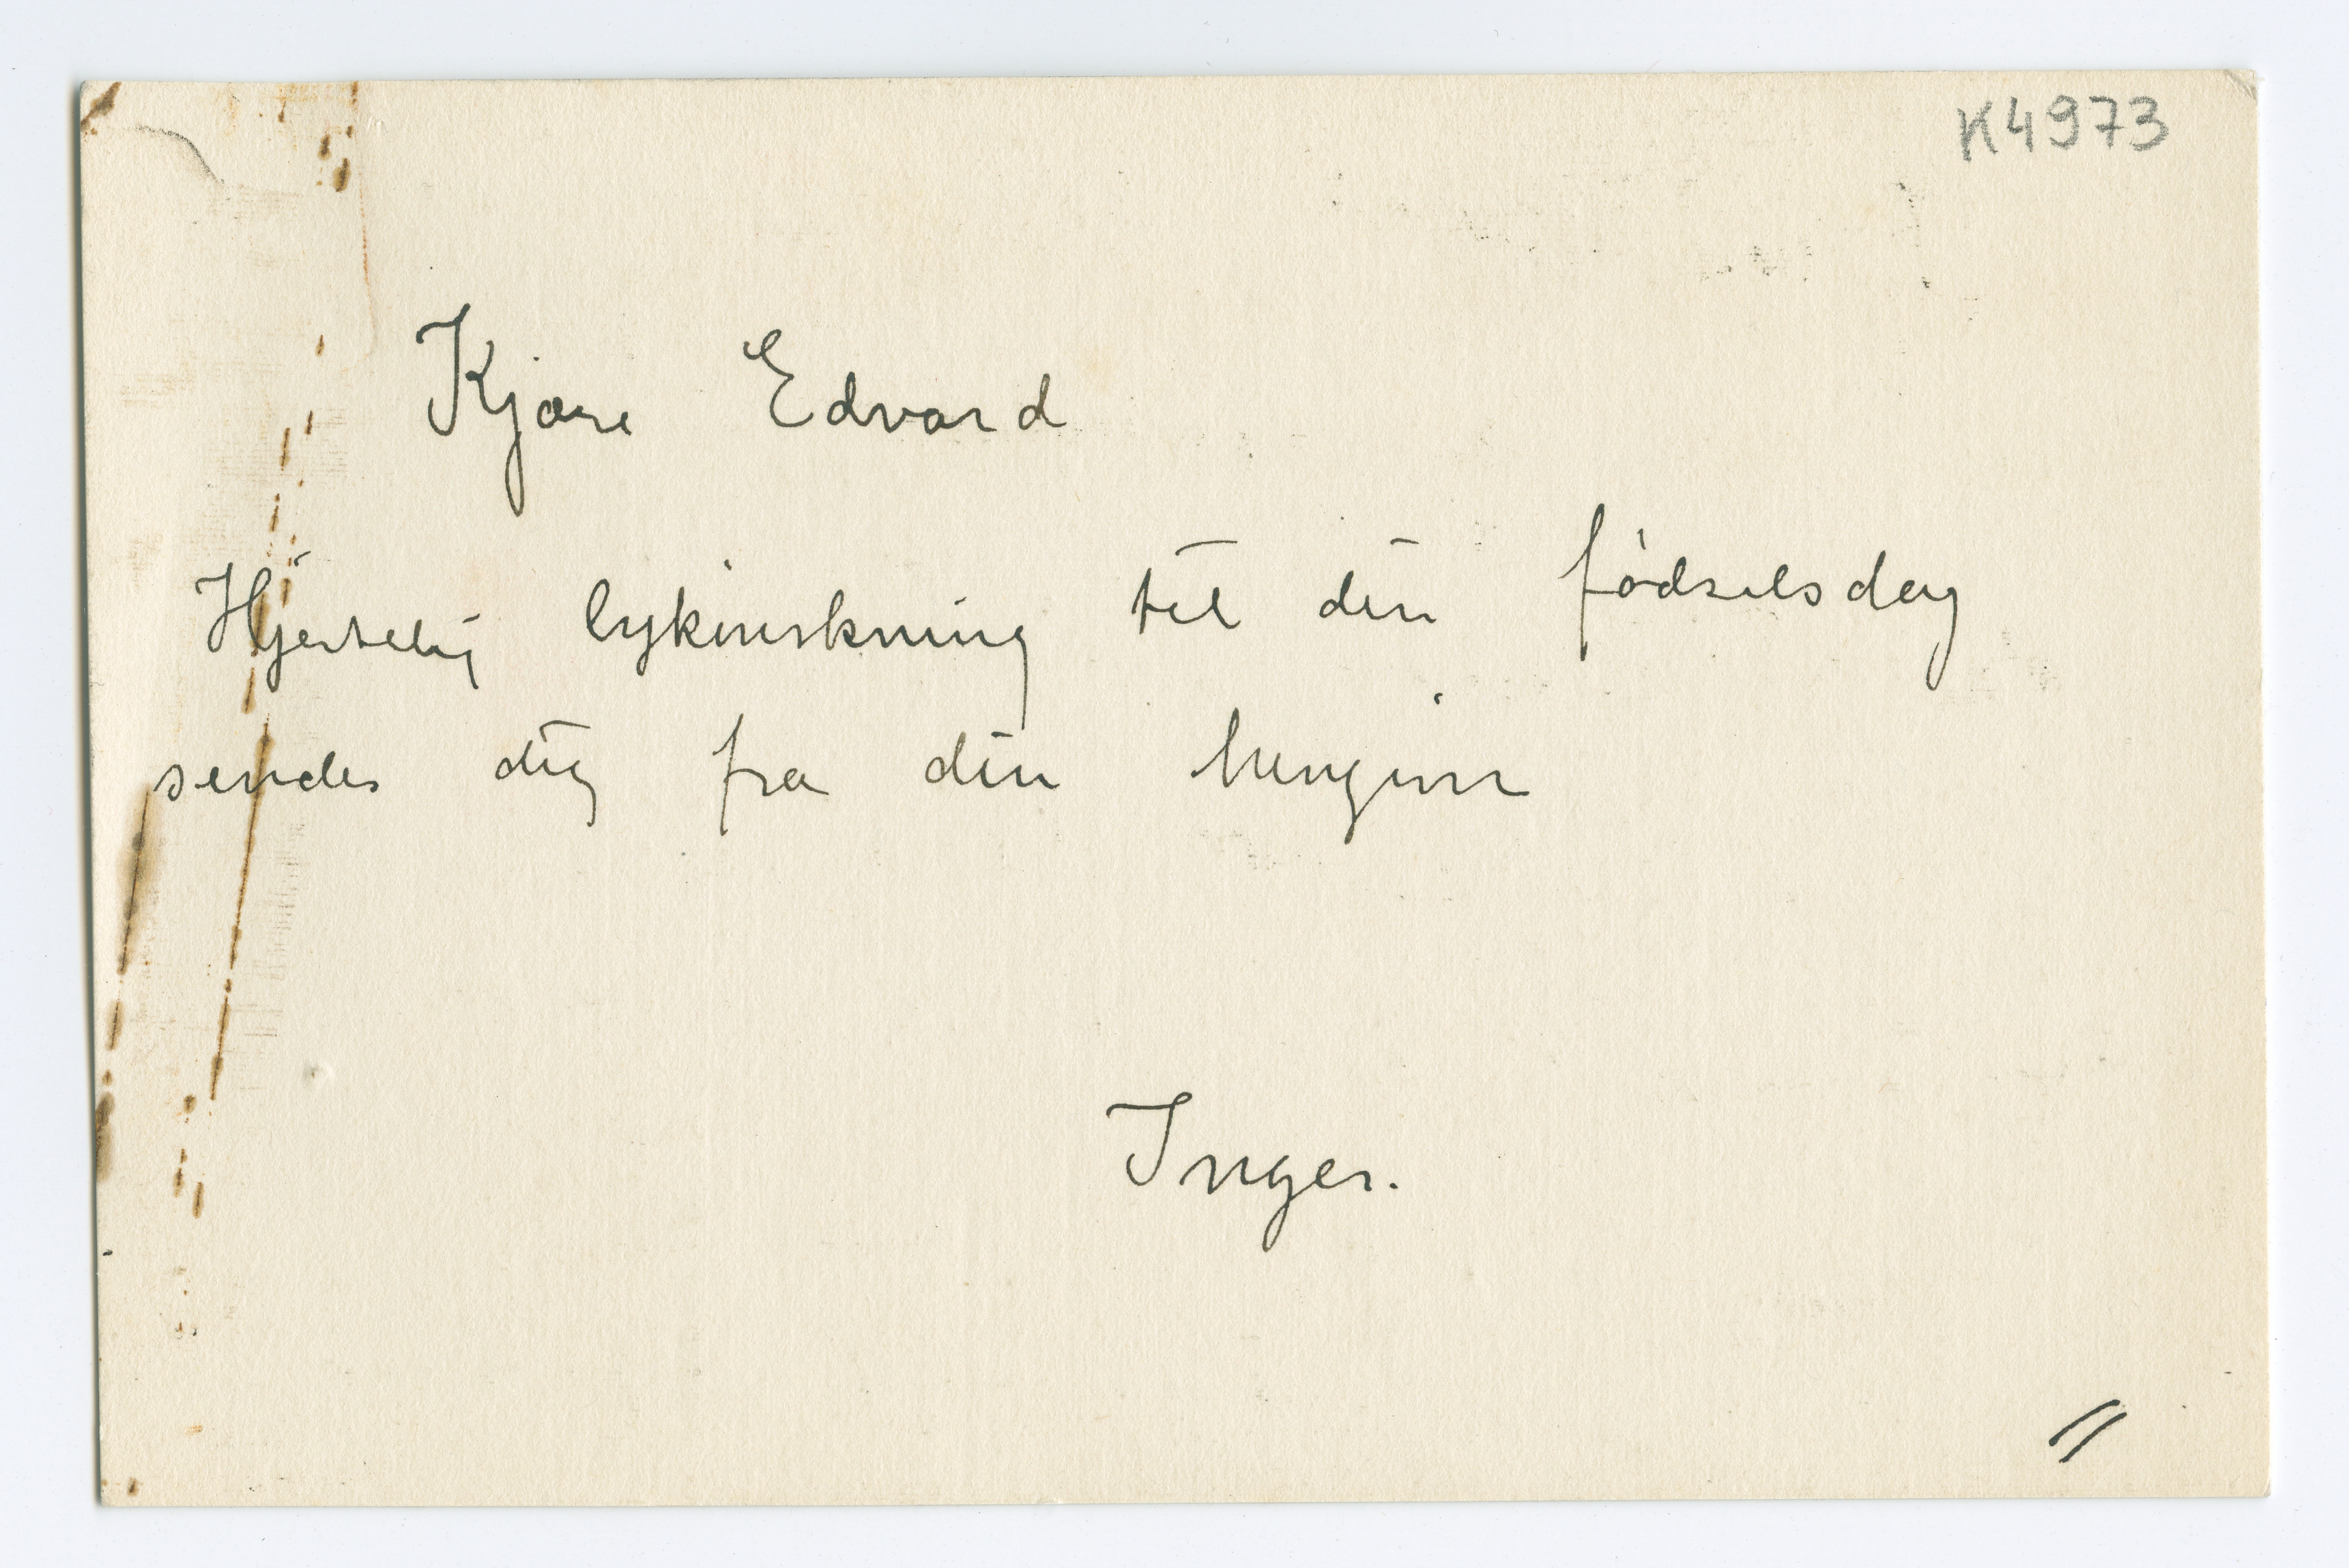 K4973
Kjære Edvard
Hjertelig lykønskning til din fødselsdag
sender dig fra din hengivne
Inger.